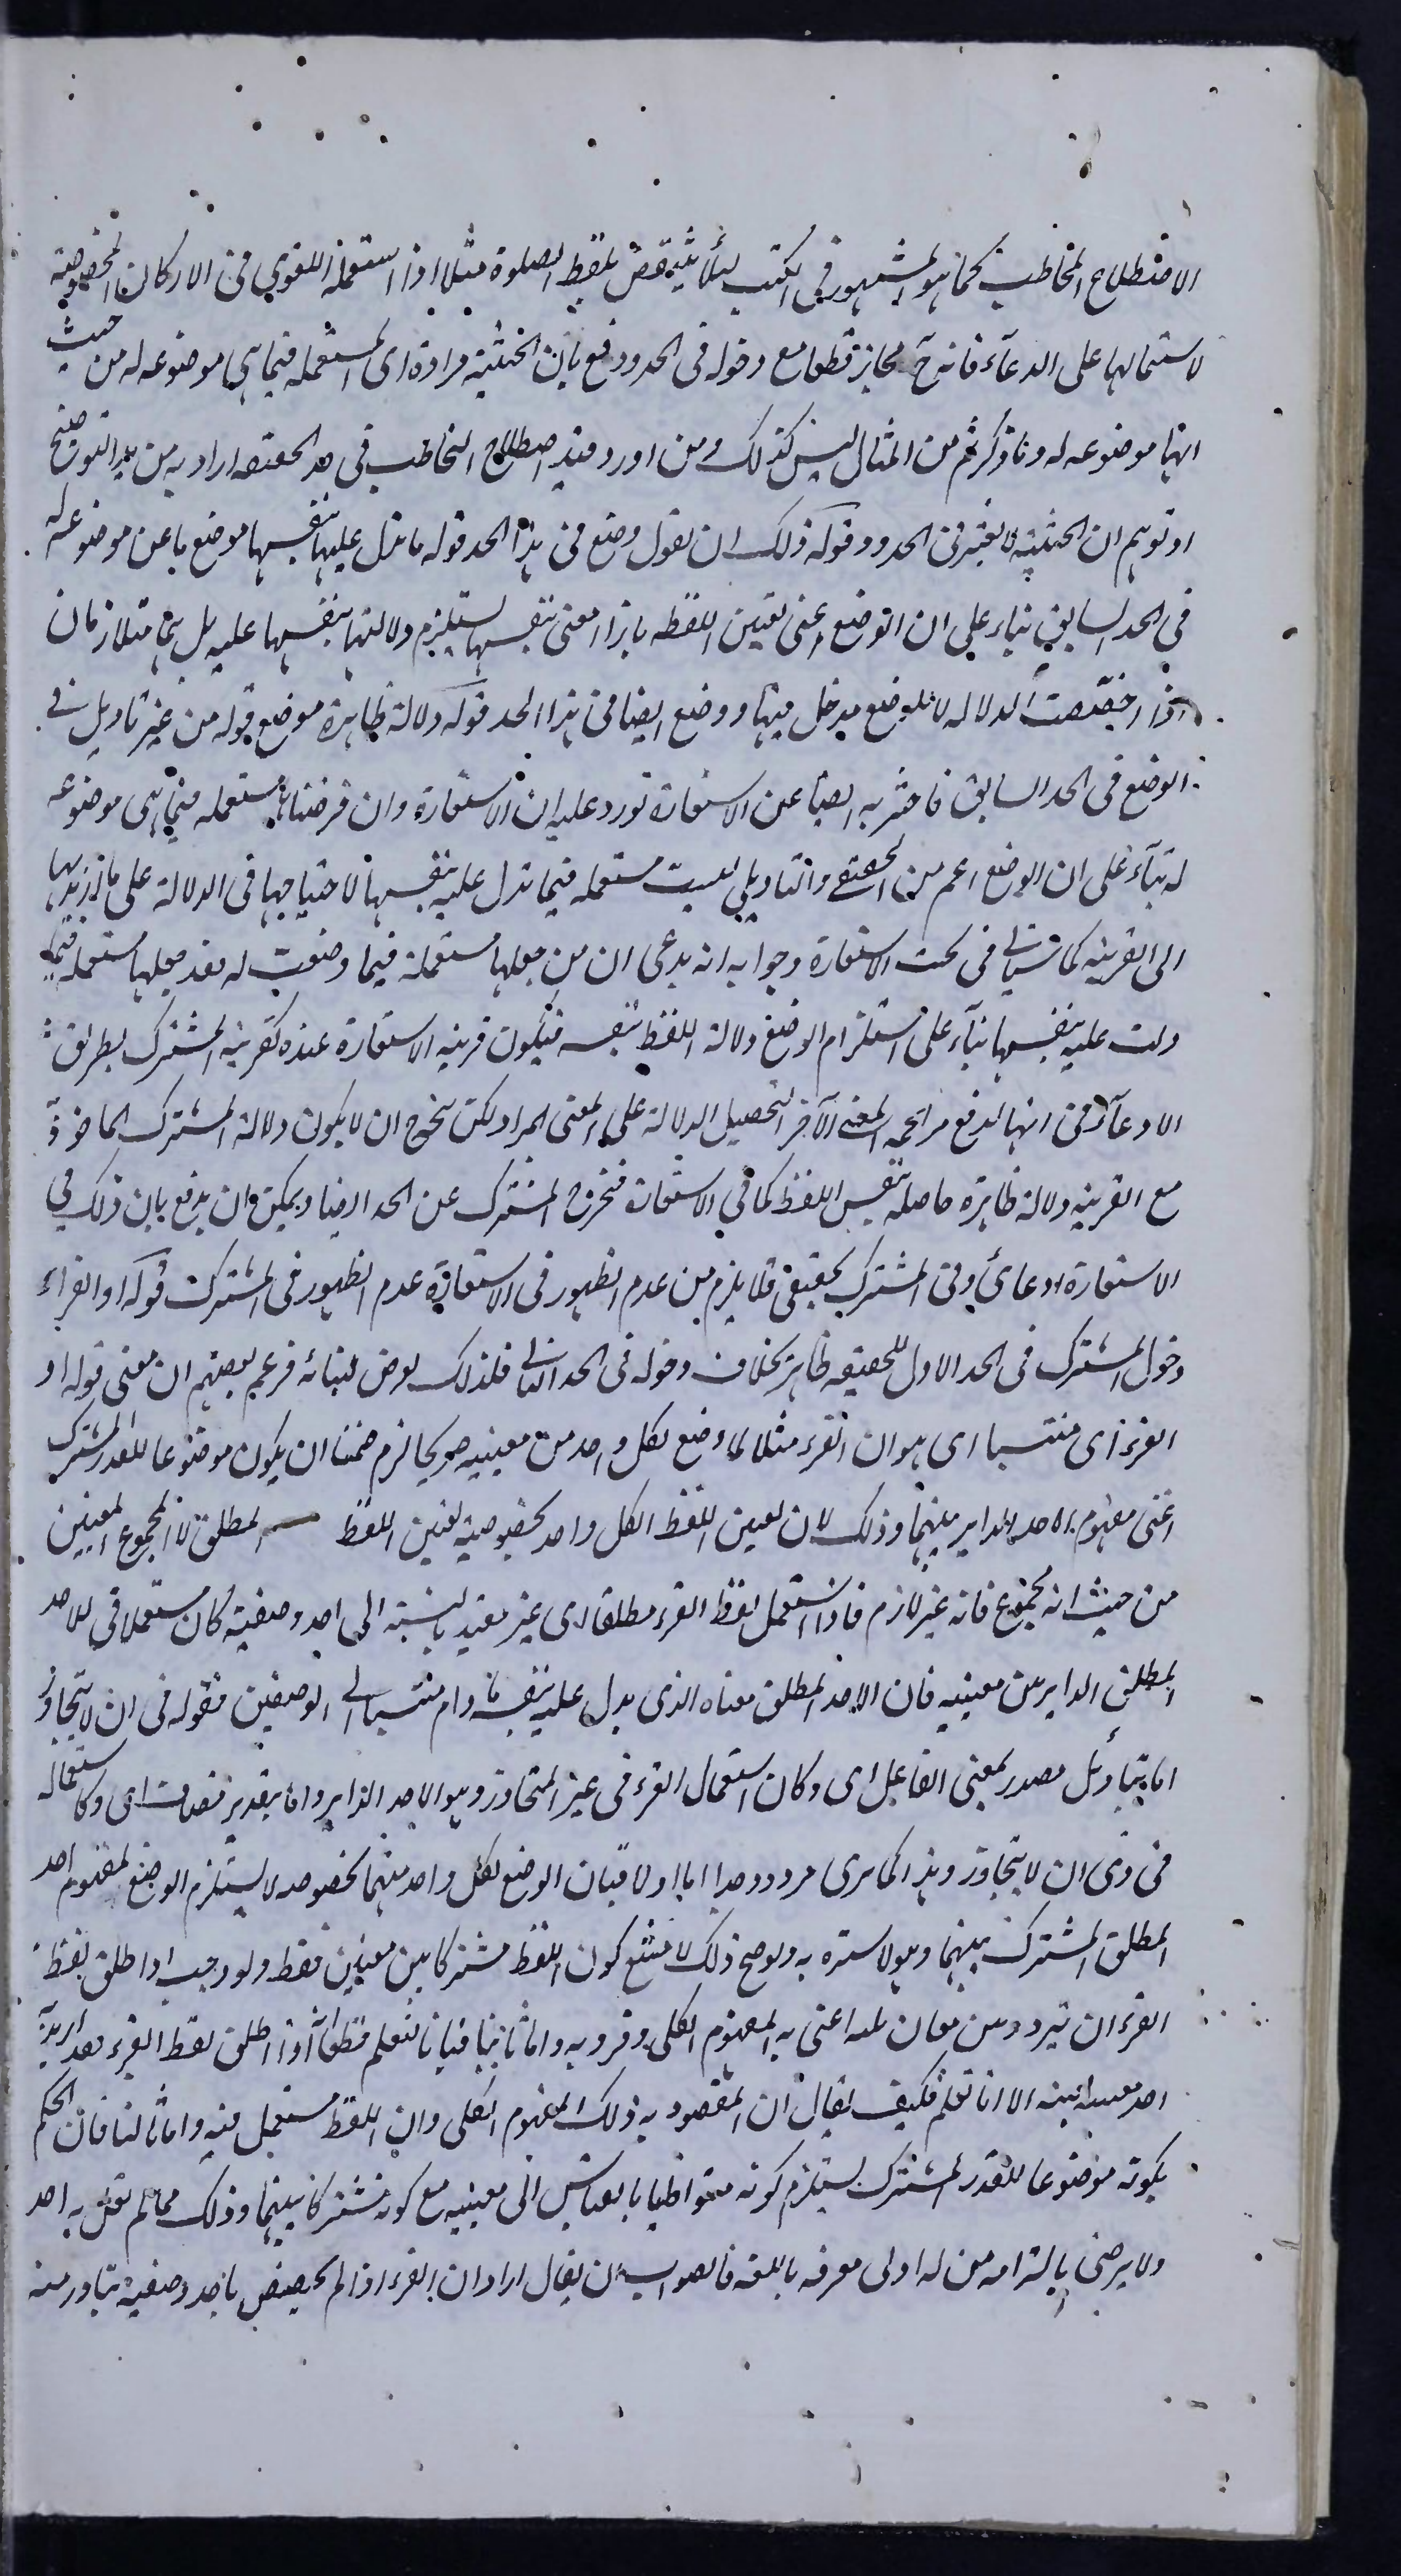 الاصطلاح المخاطب كما هو المشهور فى الكتب لئلا ينتقض بلفظ الصلوة مثلا اذا استعمله اللغوي فى الاركان المخصوصة
لاستمالها على الدعآء فانه ح مجاز قطعا مع دخوله فى الحد ودفع بان الحيثية مرادة اى المستعملة فيما هى موضوعه له من حيث
انها موضوعه له وما ذكرتم من المثال ليس كذلك ومن اورد قيد اصطلاح التخاطب فى حد الحقيقه اراد به مزيد التوضيح
او توهم ان الحيثية لا تعتبر فى الحدود قوله ذلك ان تقول وضع فى هذا الحد قوله ما تدل عليها بنفسها موضع ما هى موضوعه له
فى الحد السابق بناء على ان الوضع اعنى تعيين اللفظه بازاء معنى بنفسها يستلزم دلالتها بنفسها عليه بل هما متلازمان
اذا خصصت الدلالة بالوضع مدخل فيها ووضع ايضا فى هذا الحد قوله دلالة ظاهرة موضع قوله من غير تاويل فى
الوضع فى الحد السابق فاحترز به ايضا عن الاستعارة فورد عليه ان الاستعارة وان فرضناها مستعمله فيما هى موضوعه
له بنآء على ان الوضع اعم من الحقيقى والتاويلى ليست مستعمله فيما تدل عليه بنفسها لاحتياجها فى الدلالة على ما اريد بها
الى القرينه كما سياتى فى بحث الاستعارة وجوابه انه يدعى ان من جعلها مستعملة فيما وضعت له فقد جعلها مستعمله فيما
دلت عليه بنفسها بنآء على استلزام الوضع دلالة اللفظ بنفسه فيكون قرينه الاستعارة عنده كقرينة المشترك بطريق
الادعآء فى انها لدفع مزاحمه المعنى الآخر لا لتحصيل الدلالة على المعنى المراد لكن يتجه ان لا يكون دلالة المشترك الماخوذ
مع القرينه دلالة ظاهرة حاصله بنفس اللفظ كما فى الاستعارة فيخرج المشترك عن الحد ايضا ويمكن ان يدفع بان ذلك فى
الاستعارة ادعائى وفى المشترك تحقيقى فلا يلزم من عدم الظهور فى الاستعارة عدم الظهور فى المشترك قوله او القراء
دخول المشترك فى الحد الاول للحقيقه ظاهر بخلاف دخوله فى الحد الثانى فلذلك تعرض لبيانه فزعم بعضهم ان معنى قوله او
القرء اى منتسبا اى هو ان القرء مثلا لما وضع لكل واحد من معنييه صريحا لزم ضمنا ان يكون موضوعا للقدر المشترك
اعنى مفهوم الاحد الداير بينهما وذلك لان تعيين اللفظ لكل واحد بخصوصيته تعيين اللفظ المطلق لا المجموع المعنيين
من حيث انه مجموع فانه غير لازم فاذا استعمل لفظ القرء مطلقا اى غير مقيد بالنسبة الى احد وضعيه كان مستعملا فى الاحد
المطلق الداير بين معنييه فان الاحد المطلق معناه الذى يدل عليه بنفسه ما دام منتسبا الى الوضعين فقوله فى ان لا يتجاوز
اما بتاويل مصدر بمعنى الفاعل اى وكان استعمال القرء فى غير المتجاوز وهو الاحد الداير واما بتقدير مضاف اى وكاستعماله
فى ذى ان لا يتجاوز وهذا كما ترى مردود جدا اما اولا فبان الوضع لكل واحد منهما بخصوصه لا يستلزم الوضع لمفهوم احد
المطلق المشترك بينهما وهو لاستره به ولو صح ذلك لامتنع كون اللفظ مشتركا بين معنيين فقط ولوجب اذا اطلق لفظ
القرء ان يتردد بين معان ثلثه اعنى به المفهوم الكلى وفرديه واما ثانيا فبانا نعلم قطعا انه اذا اطلق لفظ القرء فقد اريد
احد معنييه بعينه الا انا نعلم فكيف يقال ان المقصود به ذلك المفهوم الكلى وان اللفظ مستعمل فيه واما ثالثا فان الحكم
بكونه موضوعا للقدر المشترك يستلزم كونه متواطيا بالقياس الى معنييه مع كونه مشتركا بينهما وذلك مما لم يقل به احد
ولا يرضى بالتزامه من له ادنى معرفه باللغه فالصواب ان يقال اراد ان القرء اذا لم يخصص باحد وضعيه يتبادر منه